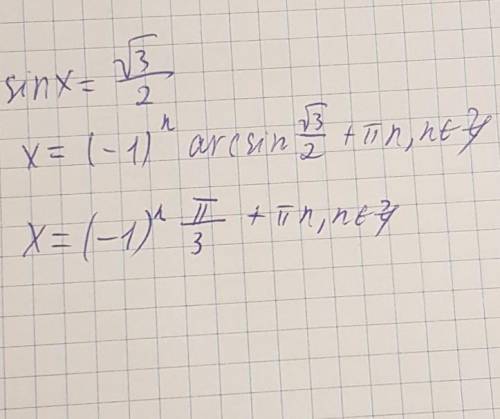 sin x = √3/2
x = (-1)ⁿ arcsin √3/2 + πn, n∈ℤ
x = (-1)ⁿ π/3 + πn, n∈ℤ